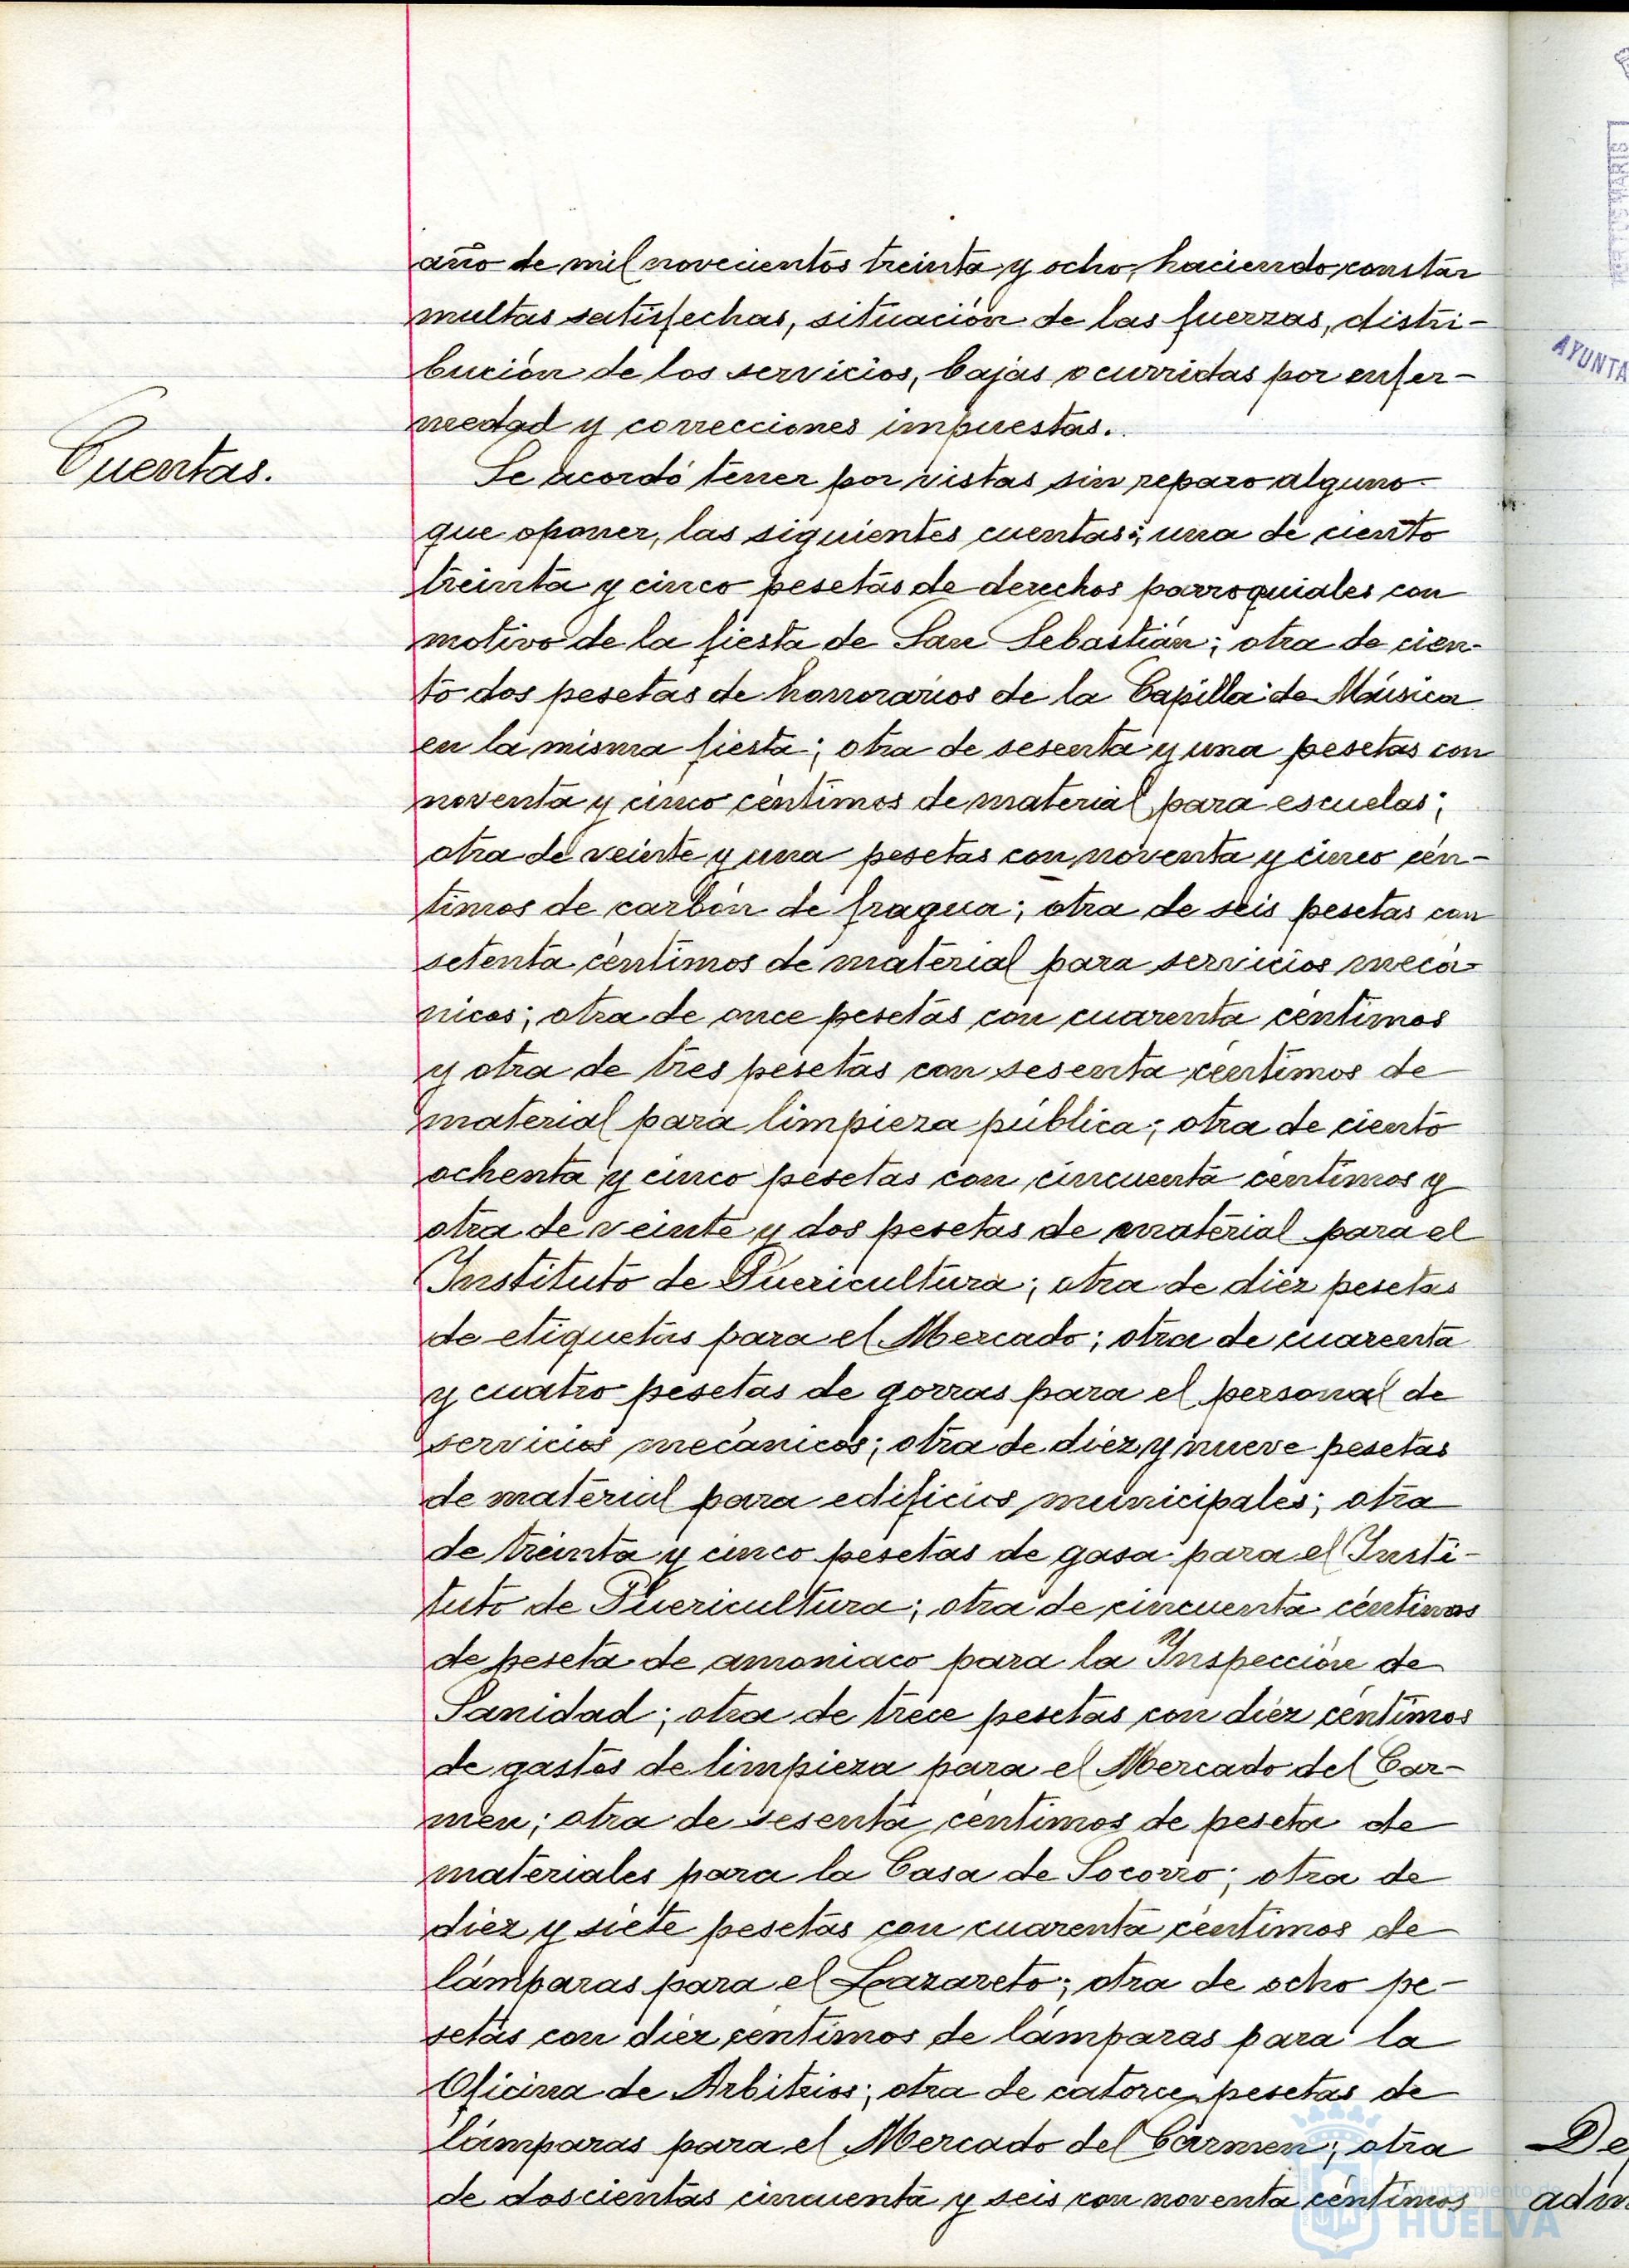 año de mil novecientos treinta y ocho, haciendo constar
multas satisfechas, situación de las fuerzas, distri-
bución de los servicios, bajas ocurridas por enfer-
medad y correcciones impuestas.
Cuentas.
Se acordó tener por vistas sin reparo alguno
que oponer, las siguientes cuentas: una de ciento
treinta y cinco pesetas de derechos parroquiales con
motivo de la fiesta de San Sebastián; otra de cien-
to dos pesetas de honorarios de la Capilla de Música
en la misma fiesta; otra de sesenta y una pesetas con
noventa y cinco céntimos de material para escuelas;
otra de veinte y una pesetas con noventa y cinco cén-
timos de carbón de fragua; otra de seis pesetas con
setenta céntimos de material para servicios mecá-
nicos; otra de once pesetas con cuarenta céntimos
y otra de tres pesetas con sesenta céntimos de
material para limpieza pública; otra de ciento
ochenta y cinco pesetas con cincuenta céntimos y
otra de veinte y dos pesetas de material para el
Instituto de Puericultura; otra de diez pesetas
de etiquetas para el Mercado; otra de cuarenta
y cuatro pesetas de gorras para el personal de
servicios mecánicos; otra de diez y nueve pesetas
de material para edificios municipales; otra
de treinta y cinco pesetas de gasa para el Insti-
tuto de Puericultura; otra de cincuenta céntimos
de peseta de amoniaco para la Inspección de
Sanidad; otra de trece pesetas con diez céntimos
de gastos de limpieza para el Mercado del Car-
men; otra de sesenta céntimos de peseta de
materiales para la Casa de Socorro; otra de
diez y siete pesetas con cuarenta céntimos de
lámparas para el Lazareto; otra de ocho pe-
setas con diez céntimos de lámparas para la
Oficina de Arbitrios; otra de catorce pesetas de
lámparas para el Mercado del Carmen; otra
de doscientas cincuenta y seis con noventa céntimos
AYUNTA
De
adm
Ayuntamiento de
HUELVA